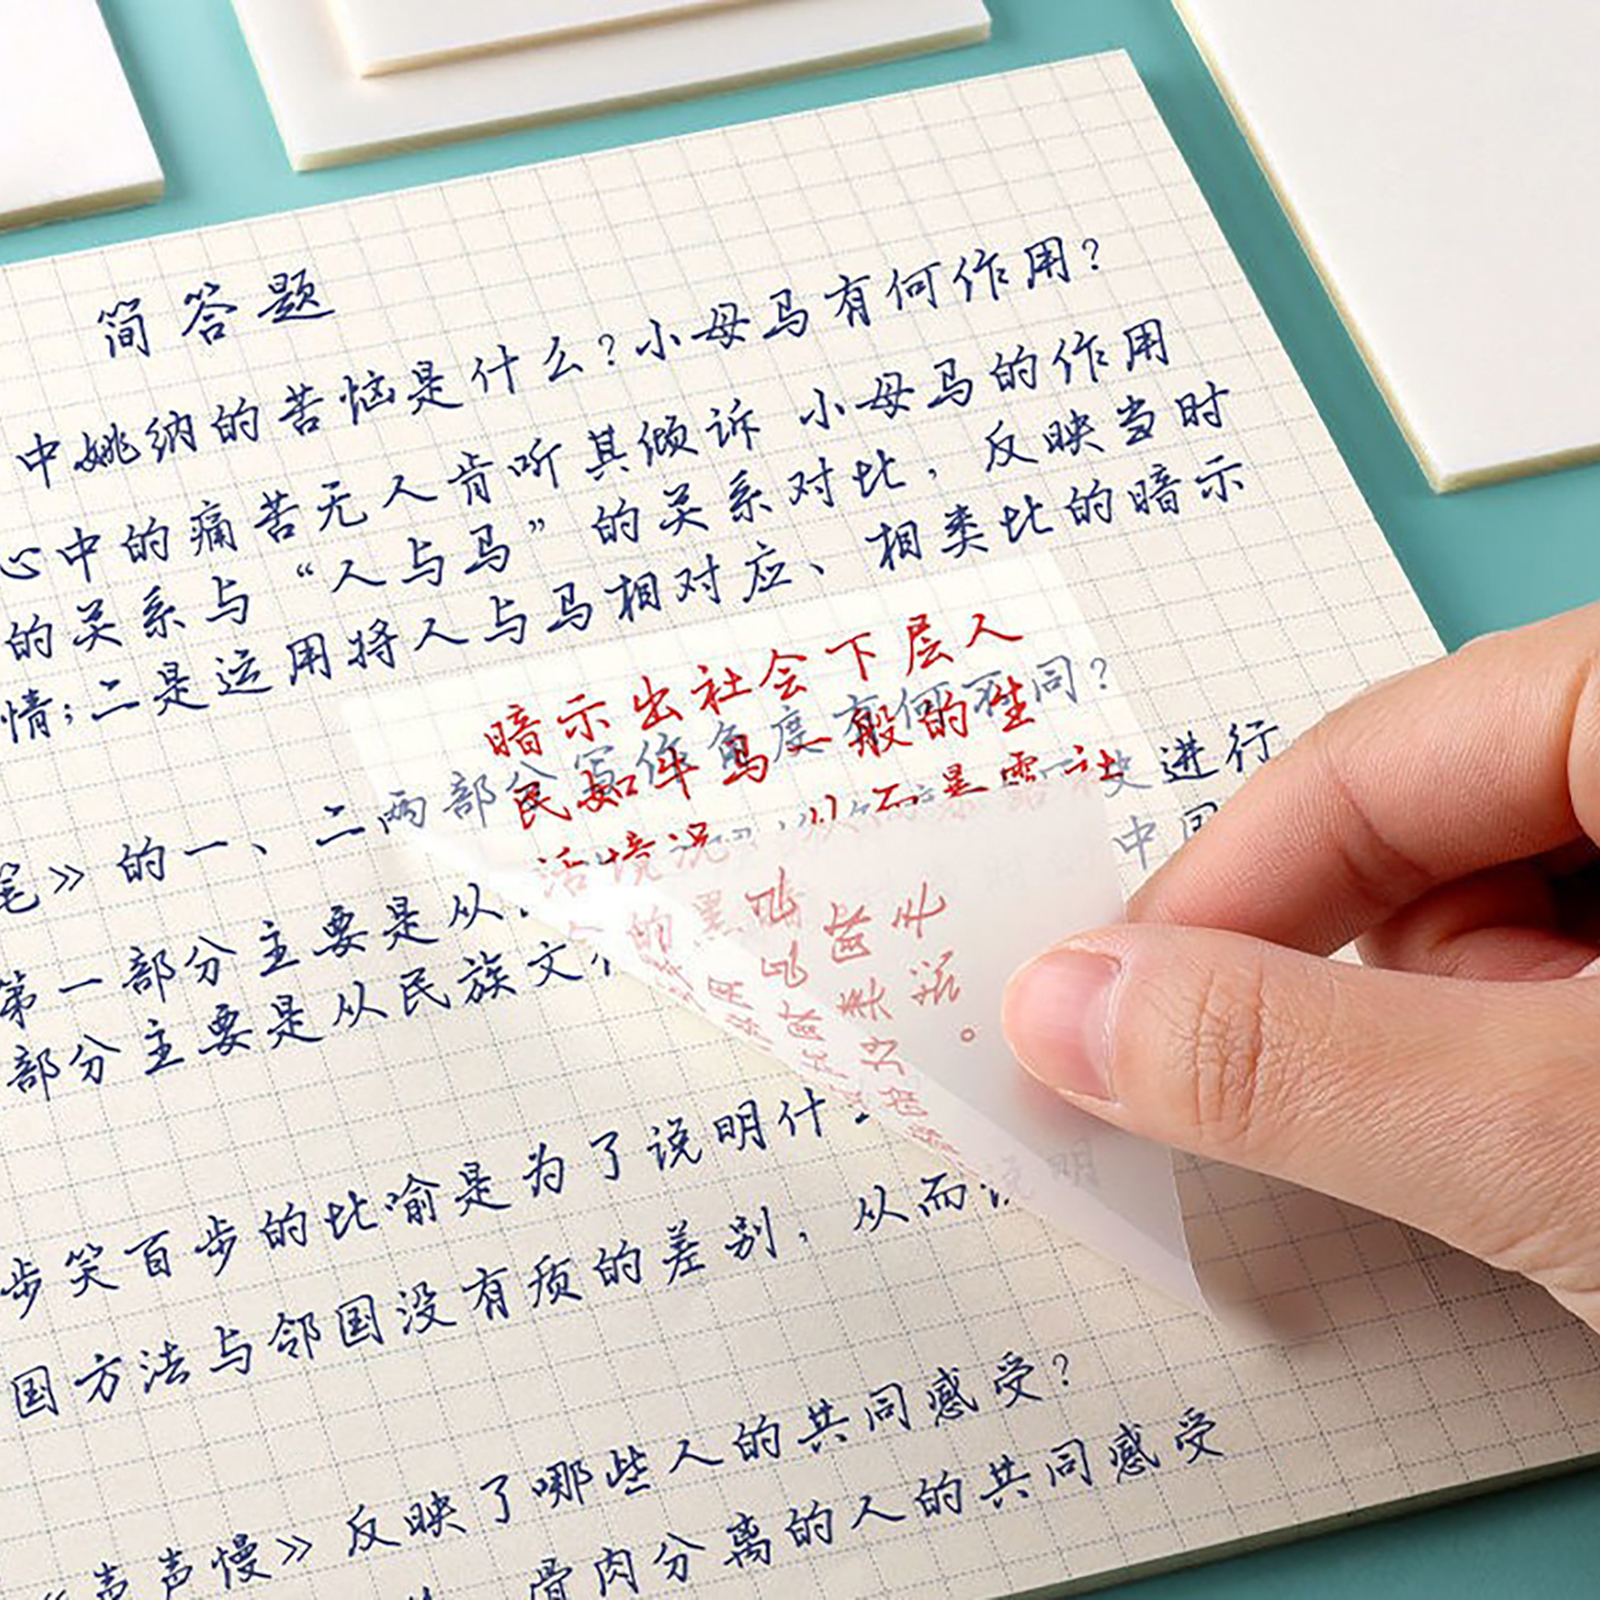 简答题
中姚纳的苦恼是什么?小母马有何作用?
心中的痛苦无人肯听其倾诉 小母马的作用
的关系与“人与马”的关系对比，反映当时
情;二是运用将人与马相对应、相类比的暗示
暗示出社会下层人
民如牛马一般的生
活境况，从而暴露社
的黑暗
的一、二两部分写作角度有何不同?
笔》
进行
第一部分主要是从
中国
部分主要是从民族文
步笑百步的比喻是为了说明什
国方法与邻国没有质的差别，从而说明
声声慢》反映了哪些人的共同感受?
骨肉分离的人的共同感受